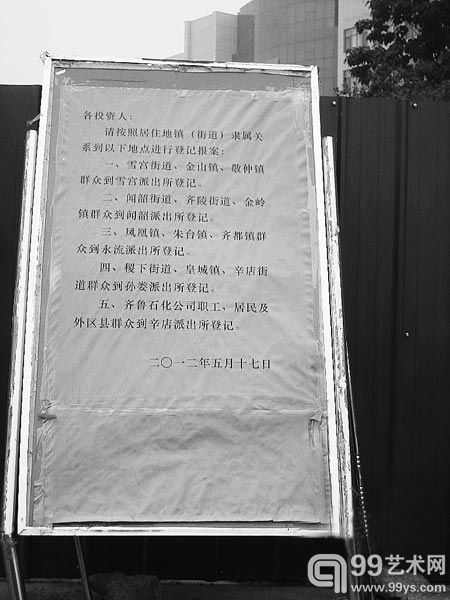 各投资人：
请按照居住地镇（街道）隶属关
系到以下地点进行登记报案：
一、雪宫街道、金山镇、敬仲镇
群众到雪宫派出所登记。
二、闻韶街道、齐陵街道、金岭
镇群众到闻韶派出所登记。
三、凤凰镇、朱台镇、齐都镇群
众到永流派出所登记。
四、稷下街道、皇城镇、辛店街
道群众到孙娄派出所登记。
五、齐鲁石化公司职工、居民及
外区县群众到辛店派出所登记。
二〇一二年五月十七日
99艺术网
www.99ys.com